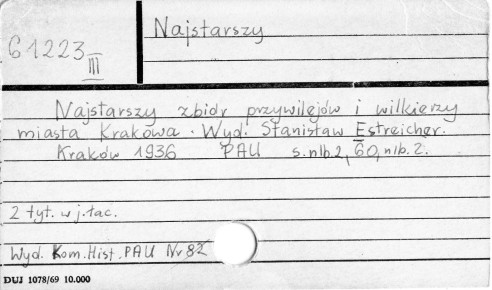 Najstarszy
61223
III
Najstarszy zbiór przywilejów i wilkierzy
miasta Krakowa. Wyd. Stanisław Estreicher.
Kraków 1936 PAU s.nlb.2, 60, nlb.2.
2 tyt. w j. łac.
Wyd. Kom. Hist. PAU Nr 82
DUJ 1078/69 10.000